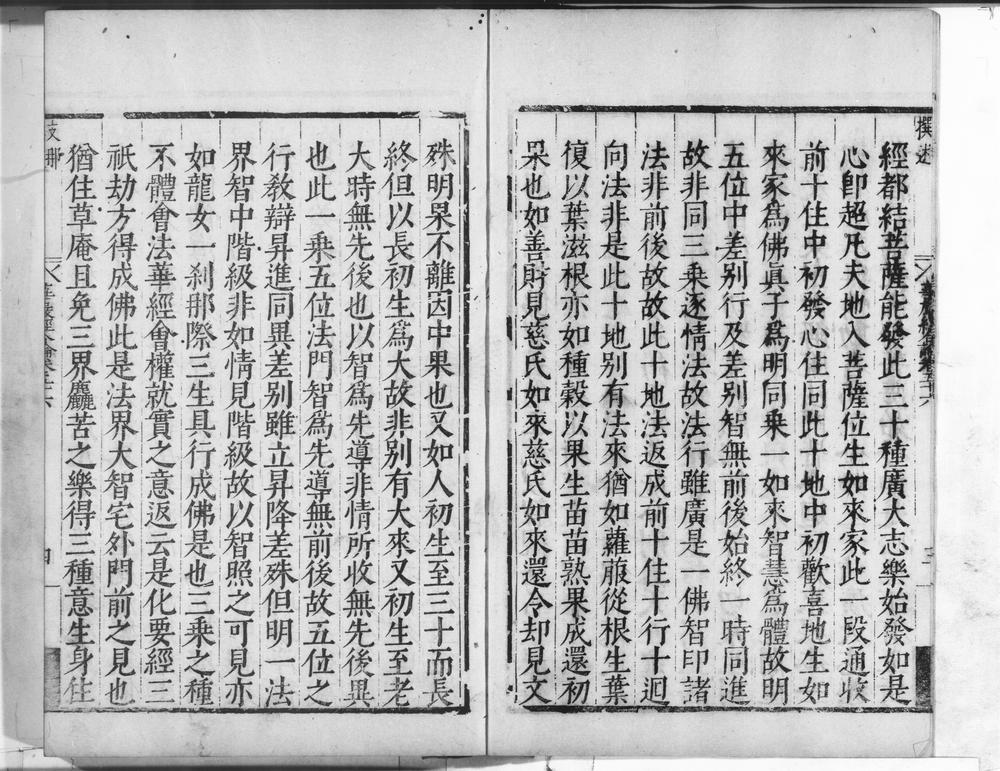 撰述
經都結菩薩能發此三十種廣大志樂始發如是
心卽超凡夫地入菩薩位生如來家此一段通收
前十住中初發心住同此十地中初歡喜地生如
來家為佛眞子為明同乗一如來智慧為體故明
五位中差别行及差别智無前後始終一時同進
故非同三乗逐情法故法行雖廣是一佛智印諸
法非前後故故此十地法返成前十住十行十迴
向法非是此十地别有法來猶如蘿菔從根生葉
復以葉滋根亦如種穀以果生苗苗熟果成還初
果也如善財見慈氏如來慈氏如來還令却見文
殊明果不離因中果也又如人初生至三十而長
終但以長初生為大故非别有大來又初生至老
大時無先後也以智為先導非情所收無先後異
也此一乗五位法門智為先導無前後故五位之
行教辯昇進同異差别雖立昇降差殊但明一法
界智中階級非如情見階級故以智照之可見亦
如龍女一刹那際三生具行成佛是也三乗之種
不體會法華經會權就實之意返云是化要經三
祇劫方得成佛此是法界大智宅外門前之見也
猶住草庵且免三界麤苦之樂得三種意生身住
四